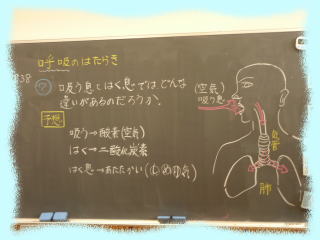 呼吸のはたらき
P38
? 吸う息とはく息ではどんな
違いがあるのだろうか。
予想
吸う→酸素(空気)
はく→二酸化炭素
はく息→あたたかい
(空気)
吸う息
気管
肺